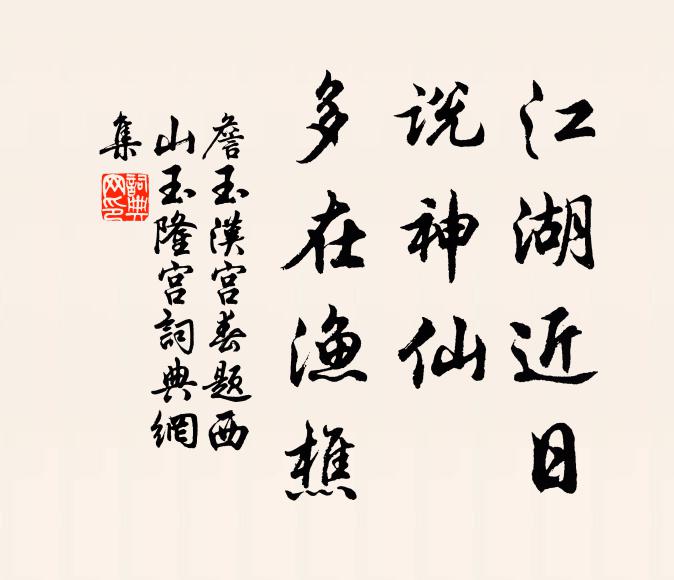 江湖近日
说神仙
多在漁樵
詹玉漢宫春题西
山玉隆宫詞典網
集
詞典网印